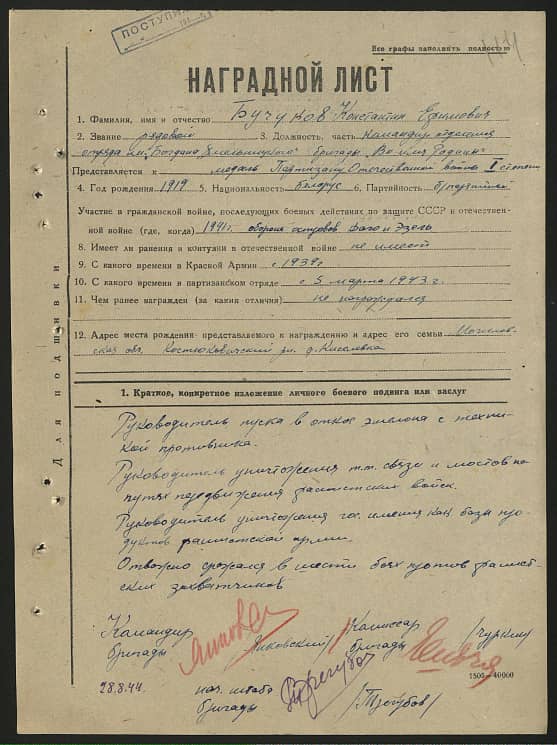 ПОСТУПИЛ
Все графы заполнять полностью
НАГРАДНОЙ ЛИСТ
1. Фамилия, имя и отчество Бучуков Константин Ефимович
2. Звание рядовой 3. Должность, часть командир отделения
отряда им. Богдана Хмельницкого бригады "Во имя Родины"
Представляется к медаль Партизану Отечественной войны I степени
4. Год рождения 1919 5. Национальность белорус 6. Партийность б/партийный
Участие в гражданской войне, последующих боевых действиях по защите СССР и отечествен-
ной войне (где, когда) 1941г. оборона островов Даго и Эзель
8. Имеет ли ранения и контузии в отечественной войне не имеет
9. С какого времени в Красной Армии с 1939г
10. С какого времени в партизанском отряде с 5 марта 1943 г.
11. Чем ранее награжден (за какие отличия) не награждался
12. Адрес места рождения представляемого к награждению и адрес его семьи Могилев-
ская обл. Костюковичский рн. д.
Для подшивки
1. Краткое, конкретное изложение личного боевого подвига или заслуг
Руководитель пуска в откос эшелона с техни-
кой противника.
Руководитель уничтожения т.т. связи и мостов на
путях передвижения фашистских войск.
Руководитель уничтожения гос. имения как базы про-
дуктов фашистской армии.
Отважно сражался в шести боях против фашист-
ских захватчиков
Командир /Яновский/ Комиссар /Чуркин/
бригады бригады
1500—40000
28.8.44. нач. штаба /Трегубов/
бригады